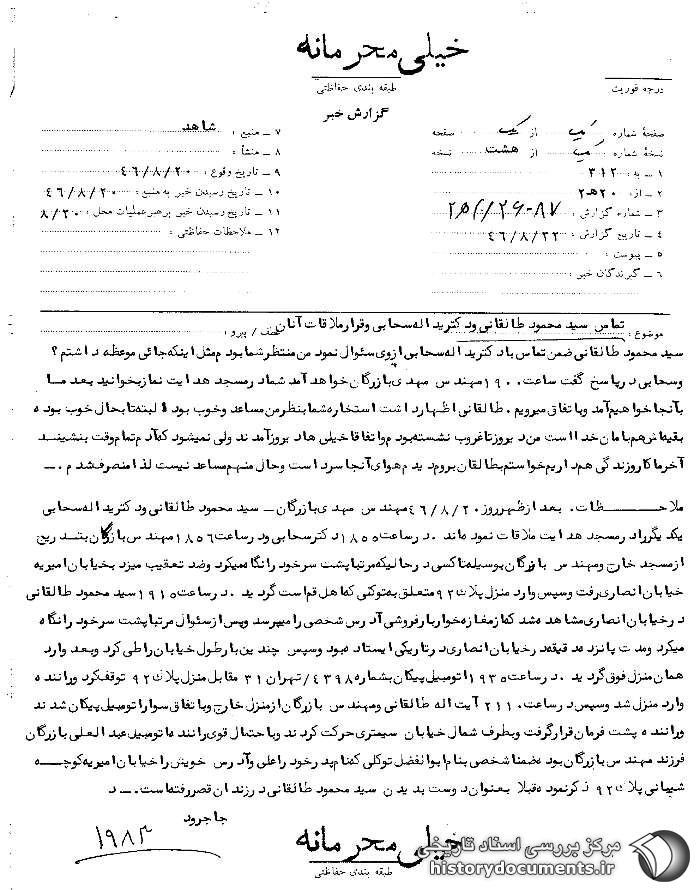 خیلی محرمانه
طبقه بندی حفاظتی
درجه فوریت
گزارش خبر
صفحهٔ شماره یک از یک صفحه
نسخهٔ شماره یک از هشت نسخه
۱ ـ به ۳۱۲
۲ ـ از ۲۰ه۲
۳ ـ شماره گزارش :
۴ ـ تاریخ گزارش : ۴۶/۸/۲۲
۵ ـ پیوست :
۶ ـ گیرندگان خبر :
۷ ـ منبع : شاهد
۸ ـ منشأ :
۹ ـ تاریخ وقوع : ۴۶/۸/۲۰
۱۰ ـ تاریخ رسیدن خبر به منبع : ۴۶/۸/۲۰
۱۱ ـ تاریخ رسیدن خبر برهبرعملیات محل : ۸/۲۰
۱۲ ـ ملاحظات حفاظتی :
موضوع : تماس سید محمود طالقانی ودکتریداله سحابی وقرارملاقات آنان عطف / پیرو :
سید محمود طالقانی ضمن تماس بادکتریداله سحابی ازوی سئوال نمود من منتظر شما بودم مثل اینکه جائی موعظه داشتم ؟
وسحابی درپاسخ گفت ساعت ۱۹۰۰ مهندس مهدی بازرگان خواهد آمد شما درمسجد هدایت نماز بخوانید بعد ما
بآنجا خواهیم آمد وباتفاق میرویم . طالقانی اظهارداشت استخاره شما بنظر من مساعد وخوب بود البته تابحال خوب بوده
بقیه اش هم بامان خدا است من دیروز تاغروب نشسته بودم واتفاقا خیلی ها دیروز آمدند ولی نمیشود که آدم تمام وقت بنشیند
آخر ما کار وزندگی هم داریم خواستم بطالقان بروم دیدم هوای آنجا سرد است وحال منهم مساعد نیست لذا منصرف شدم . ـ
ملاحظات . بعد ازظهر روز ۴۶/۸/۲۰ مهندس مهدی بازرگان ـ سید محمود طالقانی ودکتریداله سحابی
یکدیگررا درمسجد هدایت ملاقات نموده اند . در ساعت ۱۸۵۵ دکترسحابی ودر ساعت ۱۸۵۶ مهندس بازرگان بتدریج
ازمسجد خارج ومهندس بازرگان بوسیله تاکسی درحالیکه مرتبا پشت سر خود را نگاه میکرد وضد تعقیب میزد بخیابان امیریه
خیابان انصاری رفت وسپس وارد منزل پلاک ۹۲ متعلق به توکلی که اهل قم است گردید . در ساعت ۱۹۱۵ سید محمود طالقانی
درخیابان انصاری مشاهده شد که از مغازه خواربارفروشی آدرس شخصی را میپرسد وپس ازسئوال مرتبا پشت سر خود را نگاه
میکرد ومدت پانزده دقیقه درخیابان انصاری در تاریکی ایستاده بود وسپس چندین بار طول خیابان را طی کرد وبعد وارد
همان منزل فوق گردید . در ساعت ۱۹۳۵ اتومبیل پیکان بشماره ۴۳۹۸/تهران ۳۱ مقابل منزل پلاک ۹۲ توقف کرد وراننده
وارد منزل شد وسپس درساعت ۲۱۱۰ آیت اله طالقانی ومهندس بازرگان ازمنزل خارج وباتفاق سوار اتومبیل پیکان شدند
وراننده پشت فرمان قرارگرفت وبطرف شمال خیابان سیمتری حرکت کردند وباحتمال قوی راننده اتومبیل عبدالعلی بازرگان
فرزند مهندس بازرگان بوده ضمنا شخصی بنام ابوالفضل توکلی که نام پدر خود را علی وآدرس خویش را خیابان امیریه کوچه
شیبانی پلاک ۹۲ ذکرنموده قبلا بعنوان دوست بدیدن سید محمود طالقانی در زندان قصر رفته است . ـ د
جاجرود
۱۹۸۳
خیلی محرمانه
طبقه بندی حفاظتی
مرکز بررسی اسناد تاریخی
historydocuments.ir